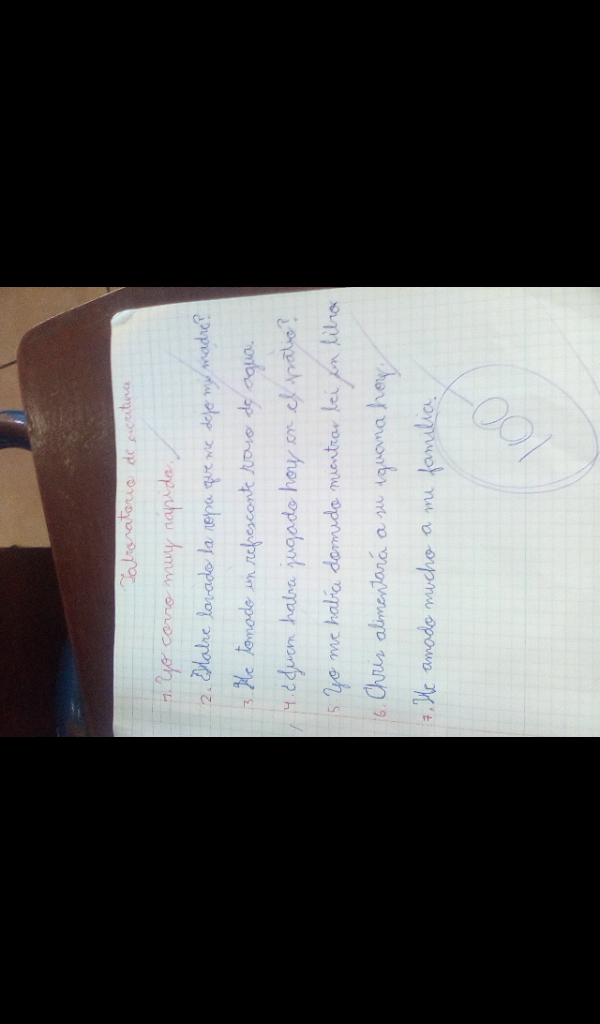 Laboratorio de escritura
1. Yo corro muy rápido.
2. ¿Habre lavado la ropa que me dejo mi madre?
3. He tomado un refrescante vaso de agua.
4. ¿Quien habra jugado hoy en el patio?
5 Yo me había dormido mientras leí un libro
6. Chris alimentará a su iguana hoy.
7. He amado mucho a mi familia.
100